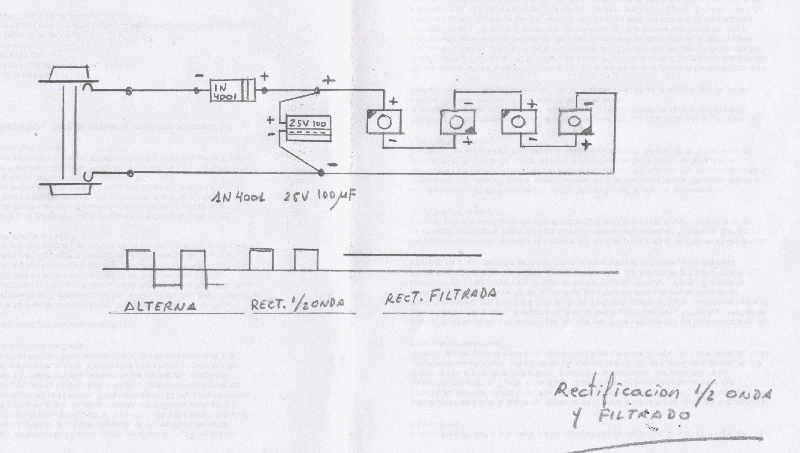 - + +
1N
4001
+ 25V 100
-
+ - + -
- + - +
-
1N 4001 25V 100 µF
ALTERNA RECT. 1/2 ONDA RECT. FILTRADA
Rectificacion 1/2 ONDA
Y FILTRADO